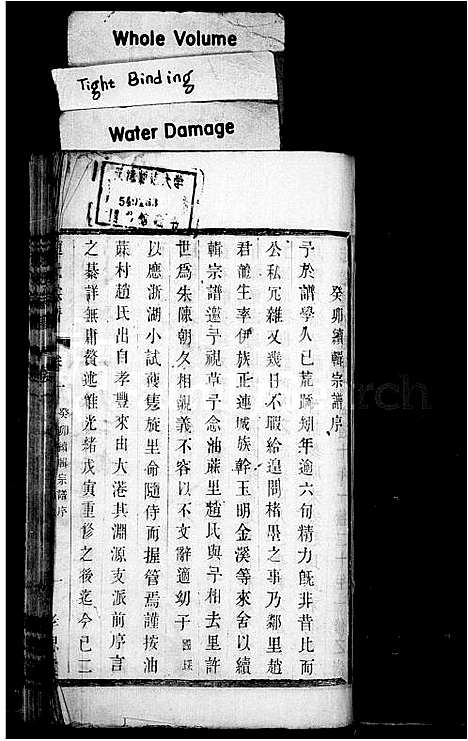 Whole Volume
Tight Binding
Water Damage
549263
癸卯續輯宗譜序
予於譜學久已荒踈矧年逾六旬精力旣非昔比而
公私冗雜又幾日不暇給遑問楮墨之事乃鄰里趙
君蘭生率伊族正連城族幹玉明金溪等來舍以續
輯宗譜邀予視草予念油蔴里趙氏與予相去里許
世爲朱陳朝久相親義不容以不文辭適幼子國琛
以應浙湖小試獲雋旋里命隨侍而握管焉謹按油
蔴村趙氏出自孝豐來由大港其淵源支派前序言
之綦詳無庸贅述惟光緒戊寅重修之後迄今已二
卷一 癸卯續輯宗譜序 一